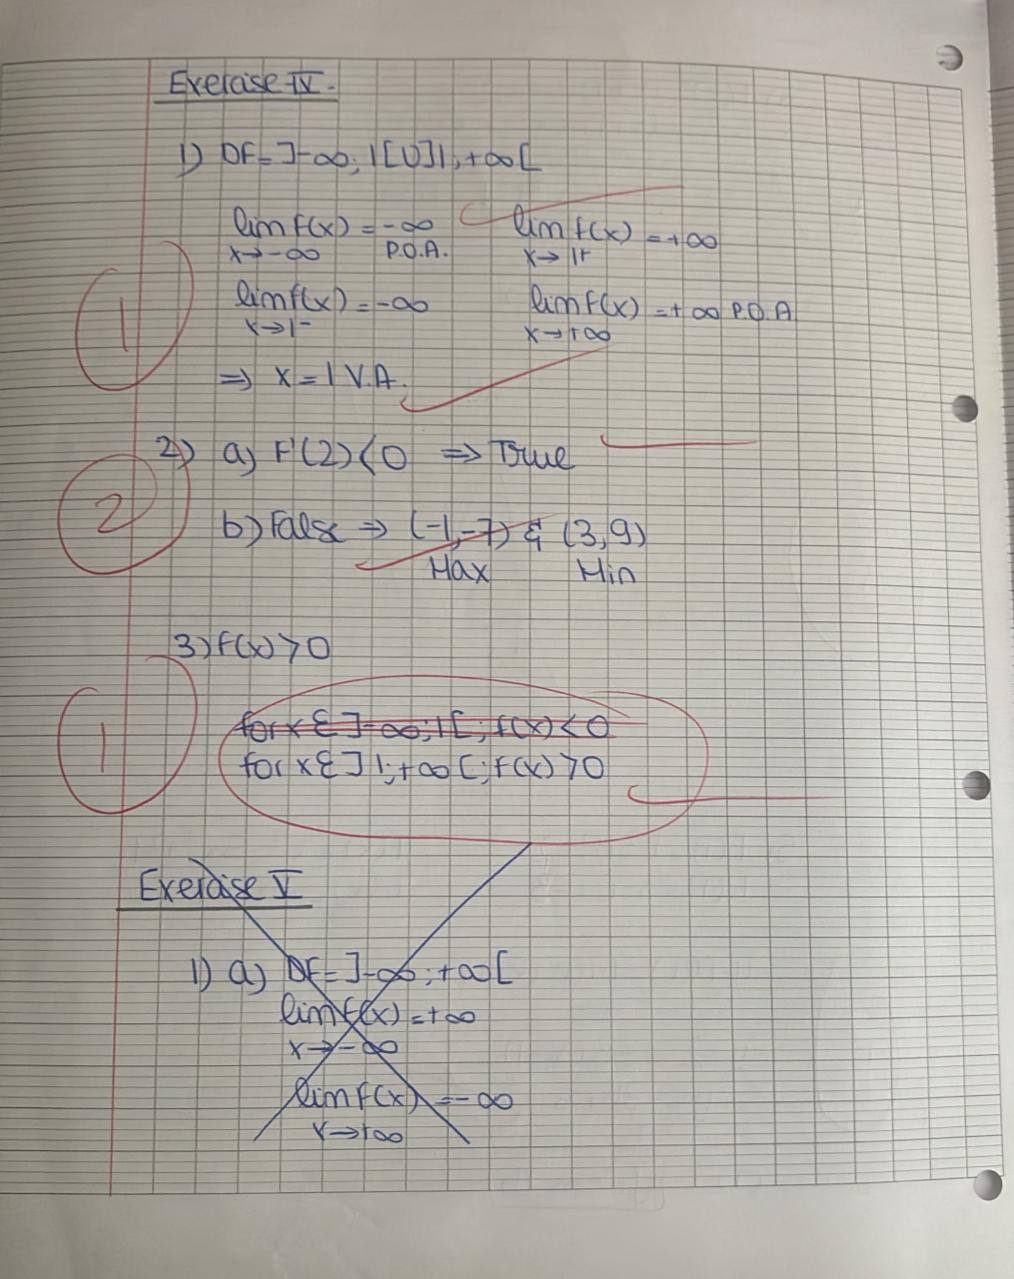 Exercise IV.
1) DF=]-∞; 1[U]1;+∞[
lim f(x) = -∞ lim f(x) = +∞
x→-∞ P.O.A. x→1+
1
lim f(x) = -∞ lim f(x) = +∞ P.O.A
x→1- x→+∞
⇒ x = 1 V.A.
2) a) F'(2)<0 ⇒ True
2
b) False ⇒ (-1,-7) & (3,9)
Max Min
3) f(x)>0
1
for x ε ]-∞;1[ ; f(x)<0
for x ε ]1;+∞[ ; f(x)>0
Exercise V
1) a) DF= ]-∞; +∞[
lim f(x) = +∞
x→-∞
lim f(x) = -∞
x→+∞